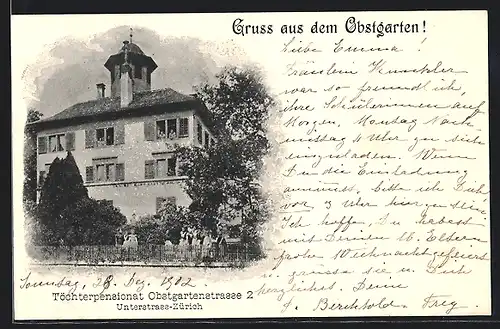 Gruss aus dem Obstgarten!
Liebe Emma!
Fräulein Kunkler
war so freundlich,
ihre Schülerinnen auf
Morgen, Montag Nach-
mittag 4 Uhr zu sich
einzuladen. Wenn
Du die Einladung
annimmst, bitte ich Dich
vor 3 Uhr hier zu sein
Ich hoffe, Du habest
mit Deinen l. Eltern
frohe Weihnacht gefeiert
u. grüsse sie u. Dich
herzlichst. Deine
J. Berchtold-Frey.
Sonntag, 28. Dez. 1902
Töchterpensionat Obstgartenstrasse 2
Unterstrass-Zürich